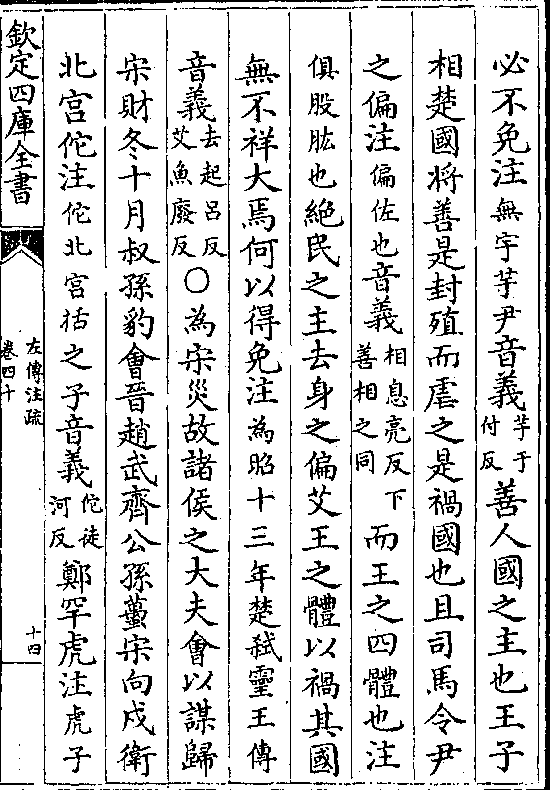 必不免注無宇芋尹音義芋于付反善人國之主也王子
相楚國將善是封殖而虐之是禍國也且司馬令尹
之偏注偏佐也音義相息亮反下善相之同而王之四體也注
俱股肱也絶民之主去身之偏艾王之體以禍其國
無不祥大焉何以得免注為昭十三年楚弑靈王傳
音義去起呂反艾魚廢反○為宋災故諸侯之大夫會以謀歸
宋財冬十月叔孫豹會晉趙武齊公孫蠆宋向戌衛
北宮佗注佗北宮括之子音義佗徒河反鄭罕虎注虎子
欽定四庫全書
左傳注疏
卷四十
十四